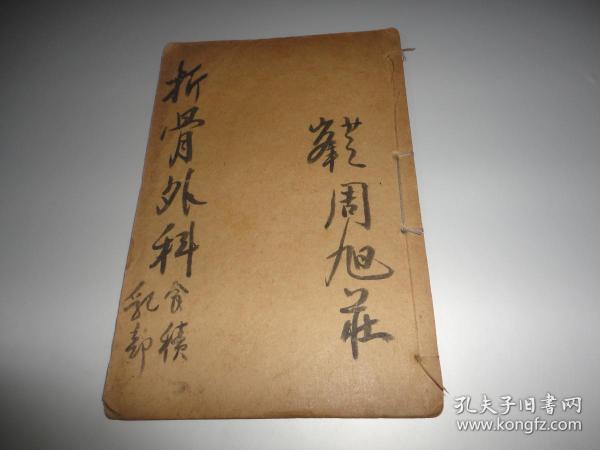 周旭莊
折骨外科
食積
乳部
孔夫子旧书网
www.kongfz.com